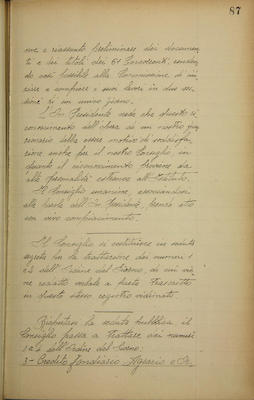 87
one e riassunto preliminare dei documen-
ti e dei titoli dei 61 concorrenti, renden-
do così possibile alla Commissione di ini-
ziare e compiere i suoi lavori in due se-
dute di un giorno.
L'On. Presidente vede che questo ri-
conoscimento dell'opera di un nostro fun-
zionario debba essere motivo di soddisfa-
zione anche per il nostro Consiglio, in
quanto il riconoscimento proviene da
alte personalità estranee all'Istituto.
Il Consiglio unanime, associandosi
alle parole dell'On. Presidente, prende atto
con vivo compiacimento.
Il Consiglio si costituisce in seduta
segreta per la trattazione dei numeri 1
e 2 dell'Ordine del Giorno, di cui vie-
ne redatto verbale a parte trascritto
in questo stesso registro vidimato.
Riapertasi la seduta pubblica il
Consiglio passa a trattare dei numeri
dell'Ordine del Giorno:
3- Credito Fondiario Agrario